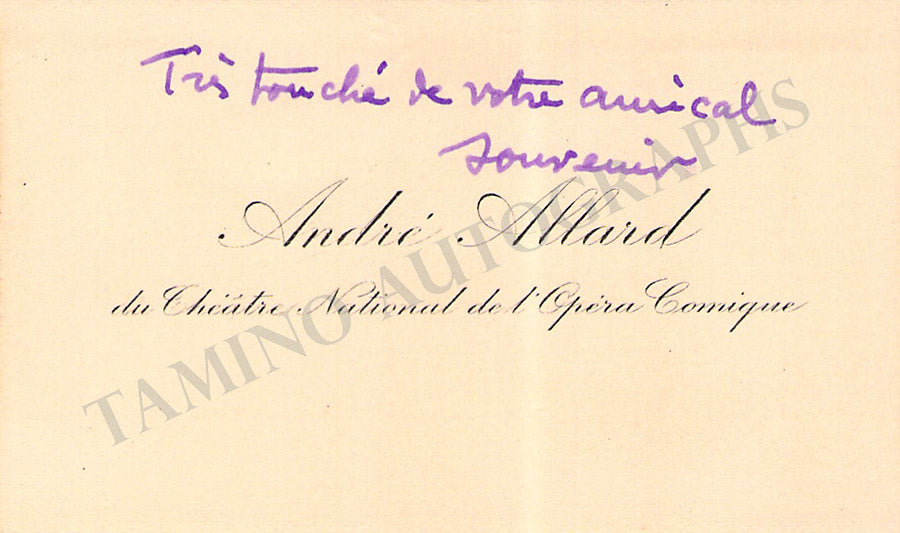 Très touché de votre amical
souvenir
André Allard
du Théâtre National de l'Opéra Comique
TAMINO AUTOGRAPHS